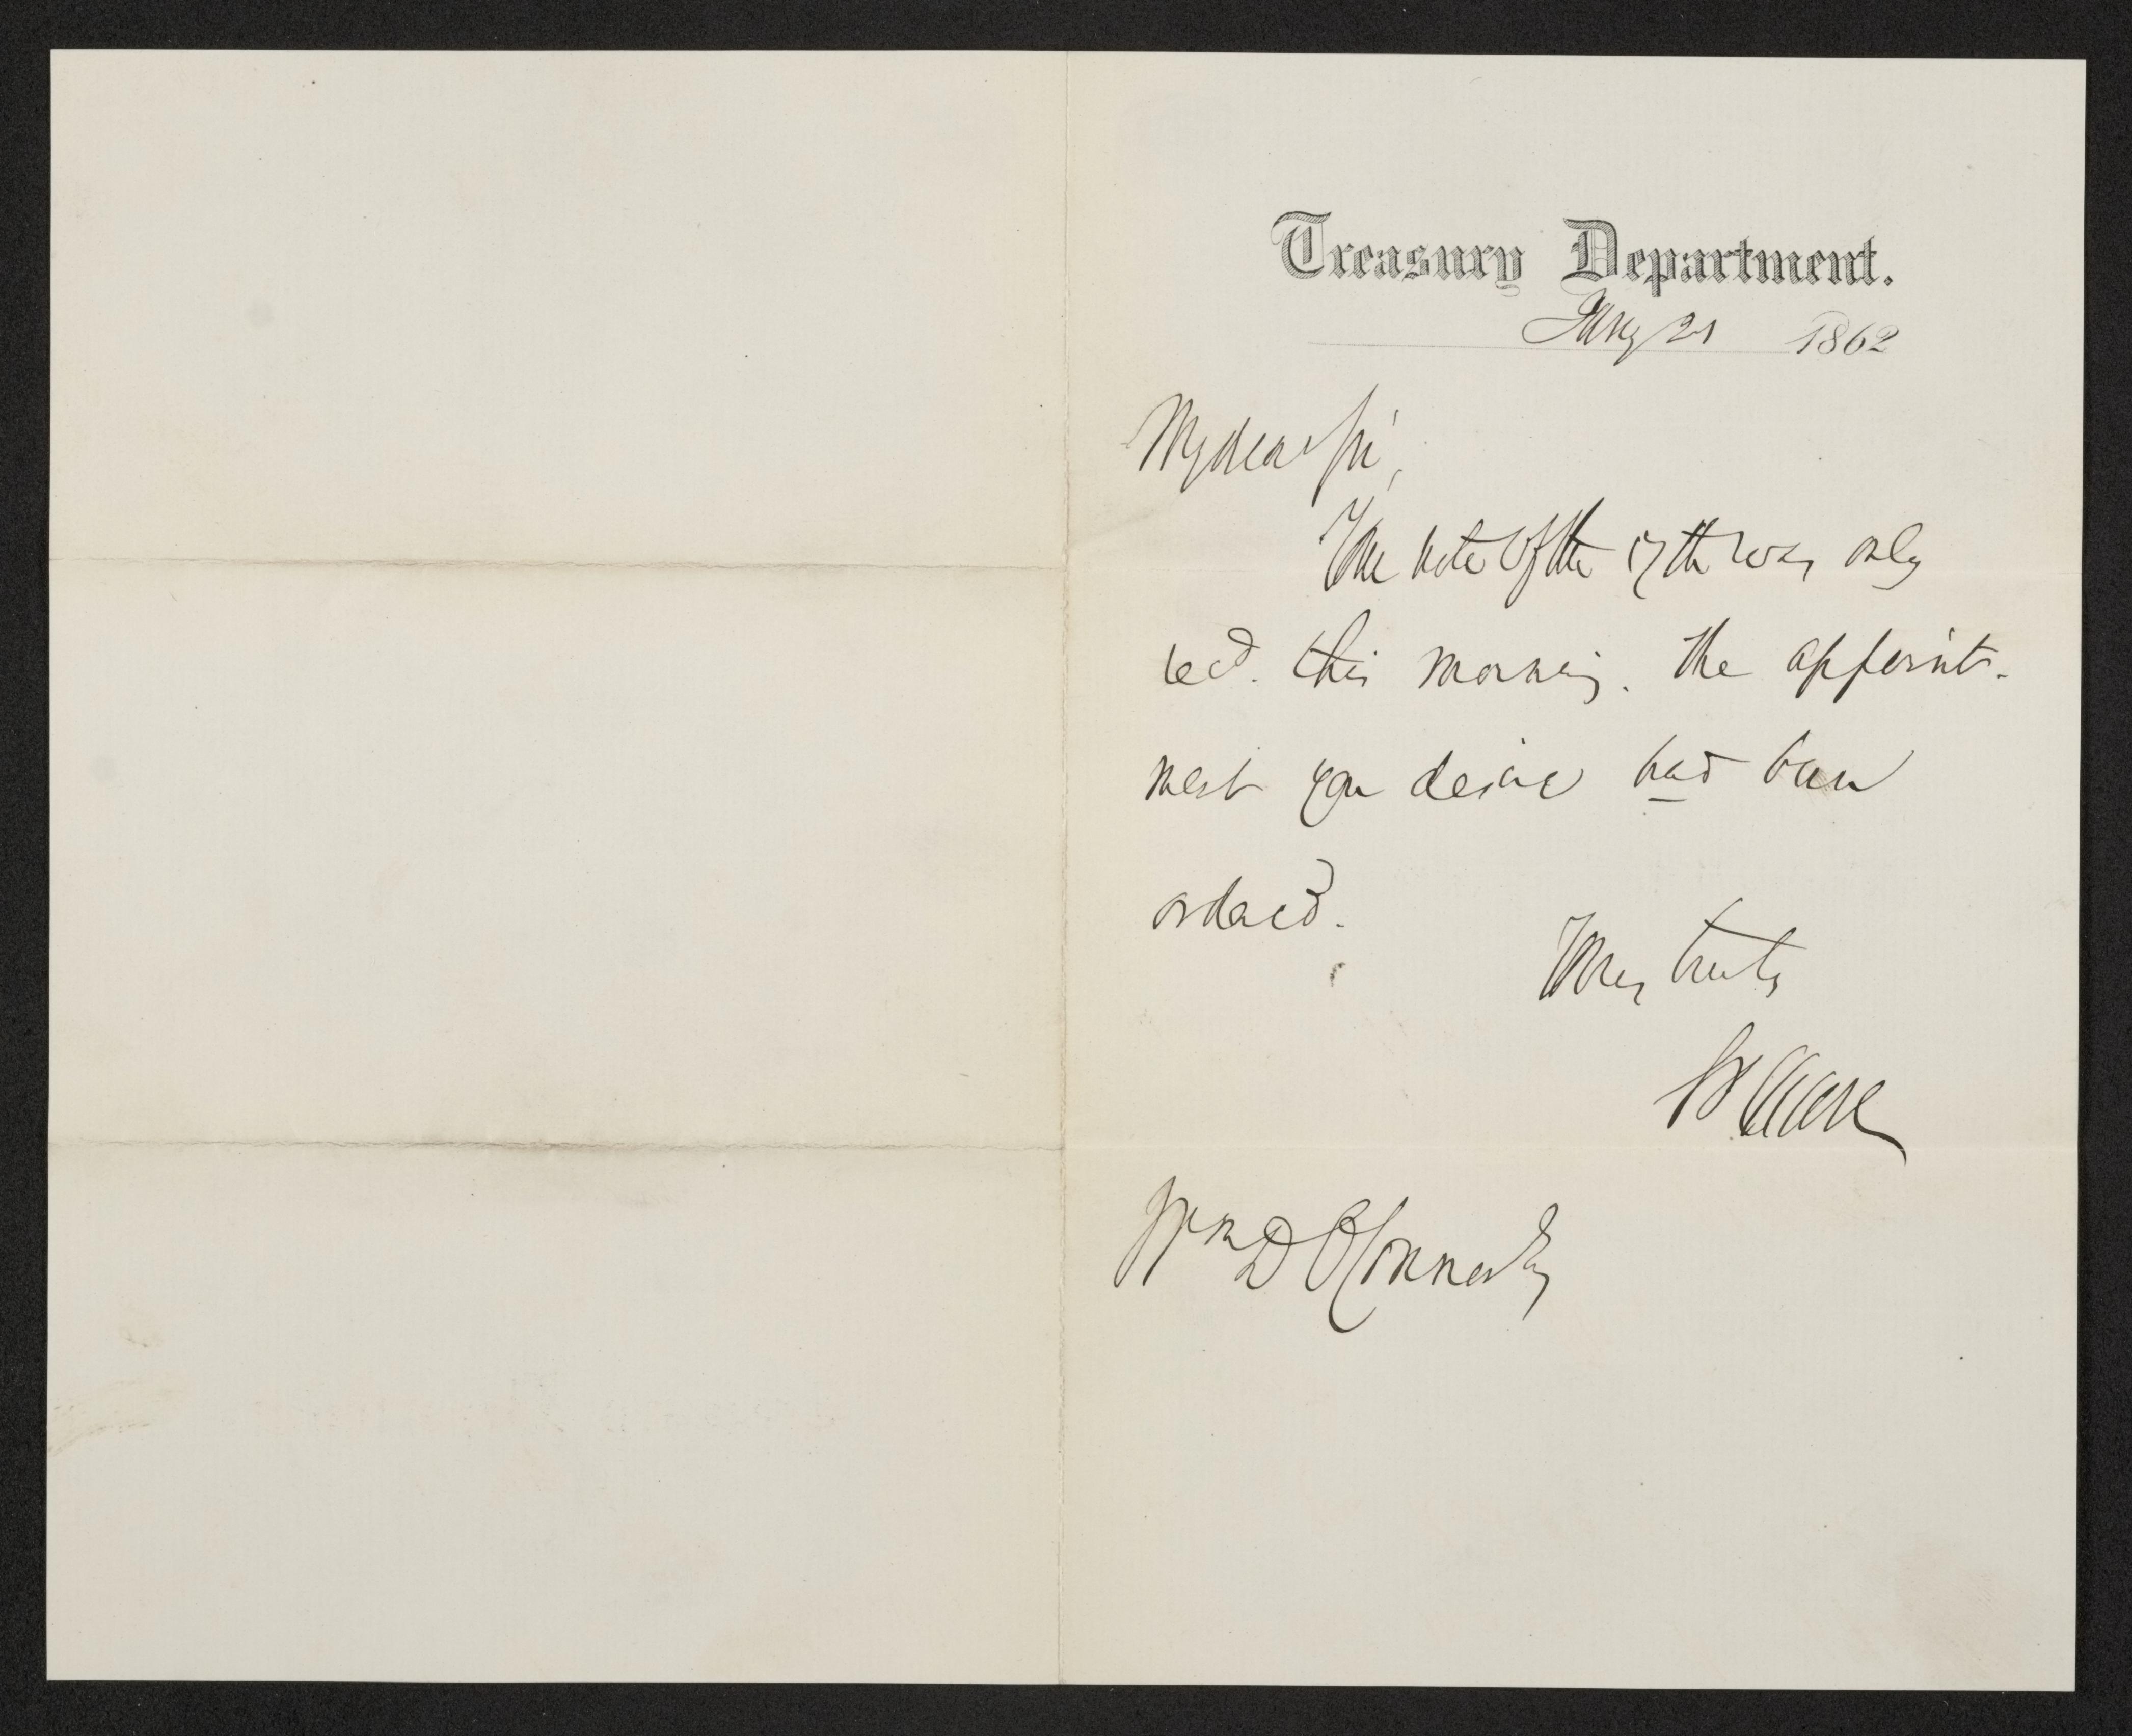 Treasury Department.
Jany 21 1862
My dear Sir,
Your note of the 17th was only
recd. this morning. The appoint-
ment you desire had been
ordered.
Yours truly
SPChase
Wm D O'Connor Esq